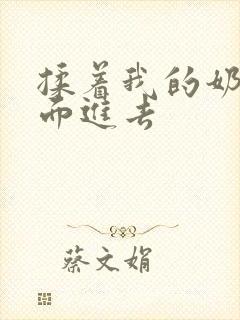 揉着我的奶
而进去
蔡文娟